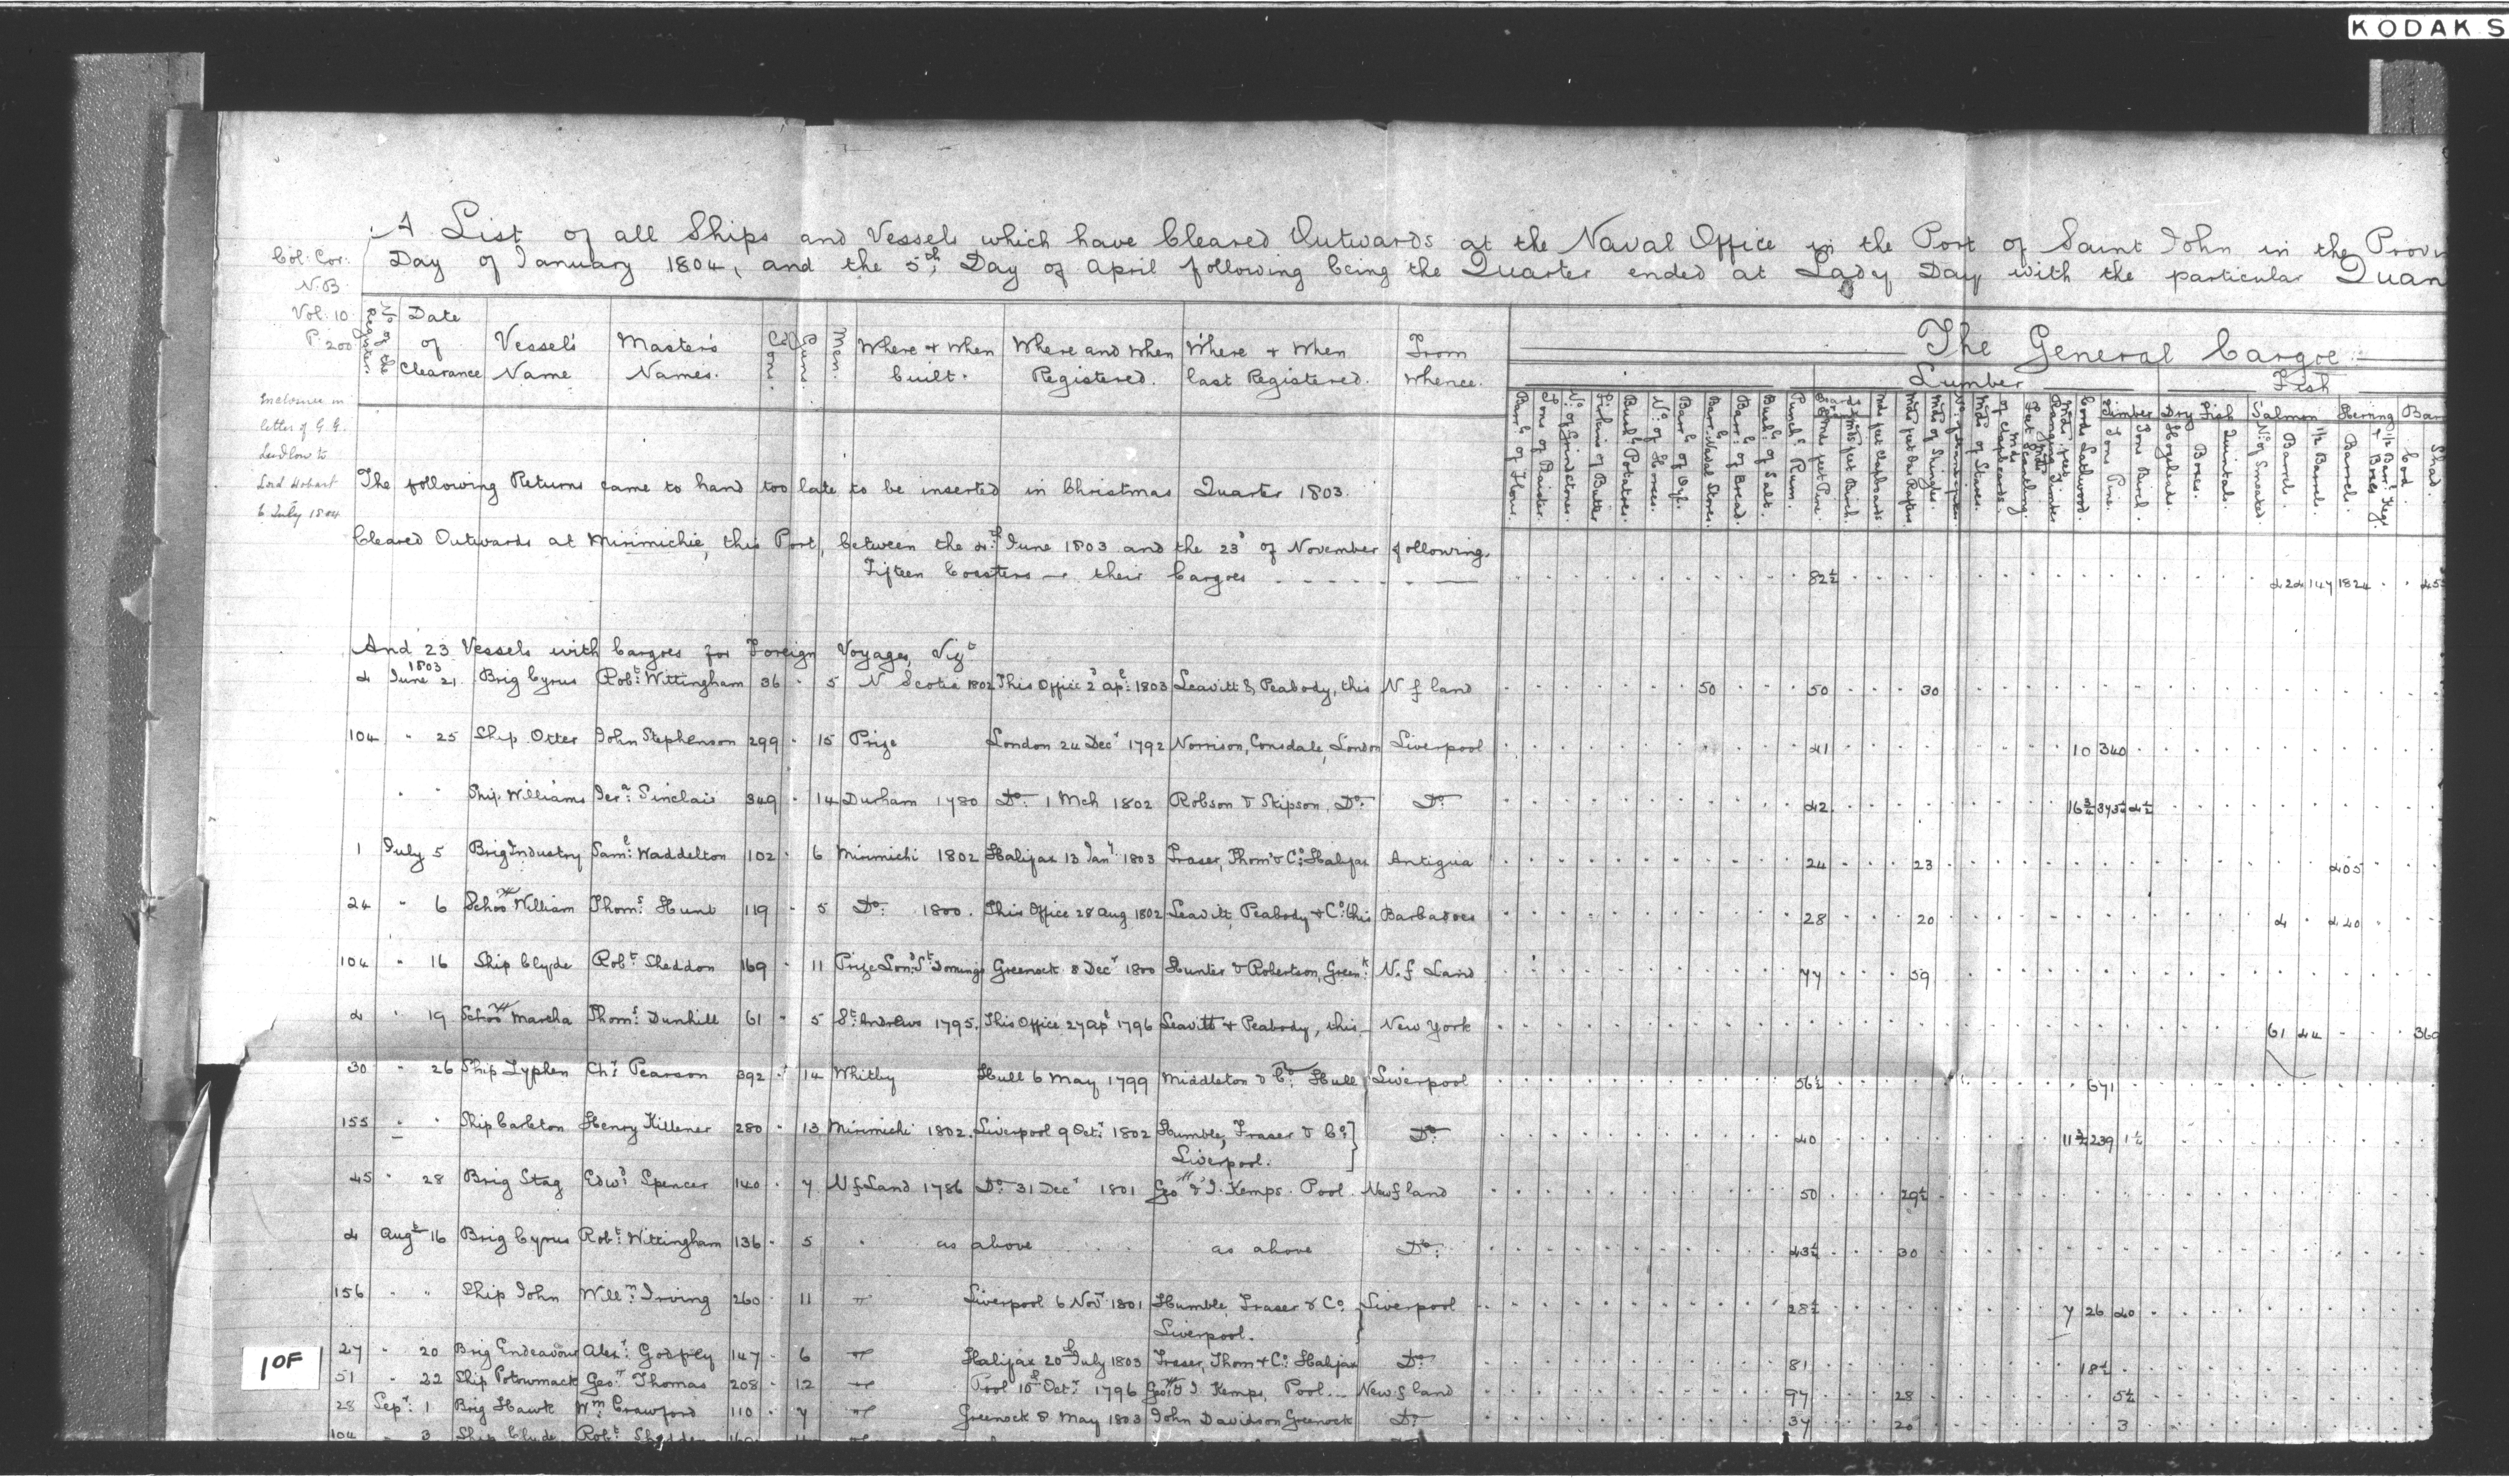 KODAK S
A List of all Ships and Vessels which have Cleared Outwards at the Naval Office in the Port of Saint John in the Provin
Day of January 1804, and the 5th Day of April following being the Quarter ended at Lady Day with the particular Quan
Col: Cor:
N.B.
Vol: 10
P. 200
Enclosure in
letter of G. G.
Ludlow to
Lord Hobart
6 July 1804
No of the Registers.
Date of Clearance
Vessel's Name
Master's Names.
Tons.
Guns.
Men.
Where & When built.
Where and When Registered.
Where & When last Registered.
From Whence.
The General Cargoe
Lumber
Fish
Barrls of Flour.
Tons of Plaister.
No of Grindstones.
Firkins of Butter
Bushls Potatoes.
No of Horses.
Barrls of Oyl.
Barrls Naval Stores.
Barrls of Bread.
Bushls of Salt.
Punchs Rum.
Mds feet Clapboards
Mds of Shingles.
Mds of Staves.
Cords Lathwood.
Timber
Tons Pine.
Tons Birch.
Dry Fish
Hogsheads.
Boxes.
Quintals.
Salmon
No of Smoaked.
Barrels.
1/2 Barrels.
Herring
Barrels.
Bar
Cod.
Shad.
The following Returns came to hand too late to be inserted in Christmas Quarter 1803.
Cleared Outwards at Mirimichie, this Port, between the 4th June 1803 and the 23d of November following.
Fifteen Coasters - their Cargoes 82½ 424 147 1824 455
And 23 Vessels with Cargoes for Foreign Voyages, Vizt
1803
4 June 21. Brig Cyrus Robt: Wittingham 36 5 N Scotia 1802 This Office 2d Apl: 1803 Leavitt & Peabody, this N f land 50 50 30
104 " 25 Ship Otter John Stephenson 299 15 Prize London 24 Decr 1792 Norrison, Consdale, London Liverpool 41 10 340
" " Ship Williams Jera: Sinclair 349 14 Durham 1780 Do: 1 Mch 1802 Robson & Skipson, Do: Do: 42
1 July 5 Brig Industry Saml: Waddelton 102 6 Mirimichi 1802 Halifax 13 Jany: 1803 Fraser, Thom & Co: Halifax Antigua 24 23 405
24 " 6 Schoor William Thoms: Hunt 119 5 Do: 1800. This Office 28 Aug 1802 Leavitt, Peabody & Co: this Barbadoes 28 20 4 440
104 " 16 Ship Clyde Robt: Sheddon 169 11 Prize Lond: St Domingo Greenock 8 Decr 1800 Hunter & Robertson, Greenk: N. f Land 77 59
4 " 19 Schoor Martha Thoms: Dunhill 61 5 St: Andrews 1795. This Office 27 Apl 1796 Leavitt & Peabody, this New York 61 44 360
30 " 26 Ship Lyphen Chs: Pearson 392 14 Whitby Hull 6 May 1799 Middleton & Co: Hull Liverpool 56½ 671
155 " " Ship Carleton Henry Killener 280 13 Mirimichi 1802. Liverpool 9 Octr: 1802 Humble, Fraser & Co: Do: 40 11¾ 239 1½
Liverpool.
45 " 28 Brig Stag Edwd: Spencer 140 7 Nf Land 1786 Do: 31 Decr 1801 Geo & J. Kemps. Pool. Newf land 50 29½
4 Augt 16 Brig Cyrus Robt: Wittingham 136 5 " as above as above Do: 43½ 30
156 " " Ship John Willm: Irving 260 11 " Liverpool 6 Novr 1801 Humble, Fraser & Co. Liverpool 28½ 7 26 40
Liverpool.
27 " 20 Brig Endeavour Alexr: Godfrey 147 6 " Halifax 20th July 1803 Fraser, Thom & Co: Halifax Do: 81 18½
51 " 22 Ship Potowmack Geo: Thomas 208 12 " Pool 10th Octr: 1796 Geo: & J Kemps, Pool Newf land 97 28 5½
28 Sepr: 1 Brig Hawk Wm Crawford 110 7 " Greenock 8 May 1803 John Davidson Greenock Do: 37 20 3
104 " 3 Ship Clyde Robt: Shedden
1 OF